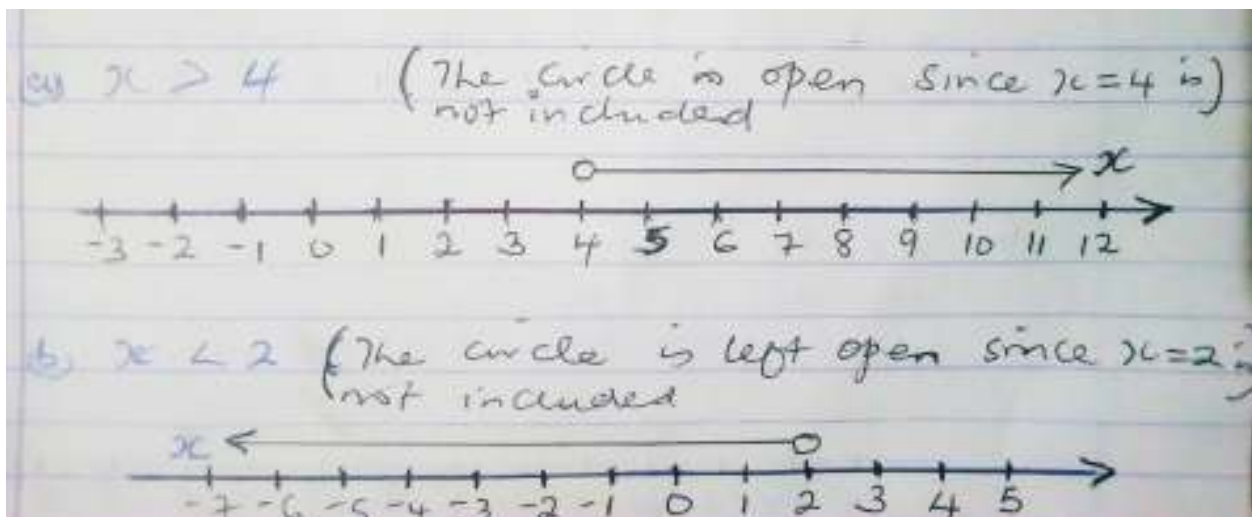 (a) x > 4 (The circle is open since x=4 is)
not included
x
-3 -2 -1 0 1 2 3 4 5 6 7 8 9 10 11 12
(b) x < 2 (The circle is left open since x=2 is)
not included
x
-7 -6 -5 -4 -3 -2 -1 0 1 2 3 4 5